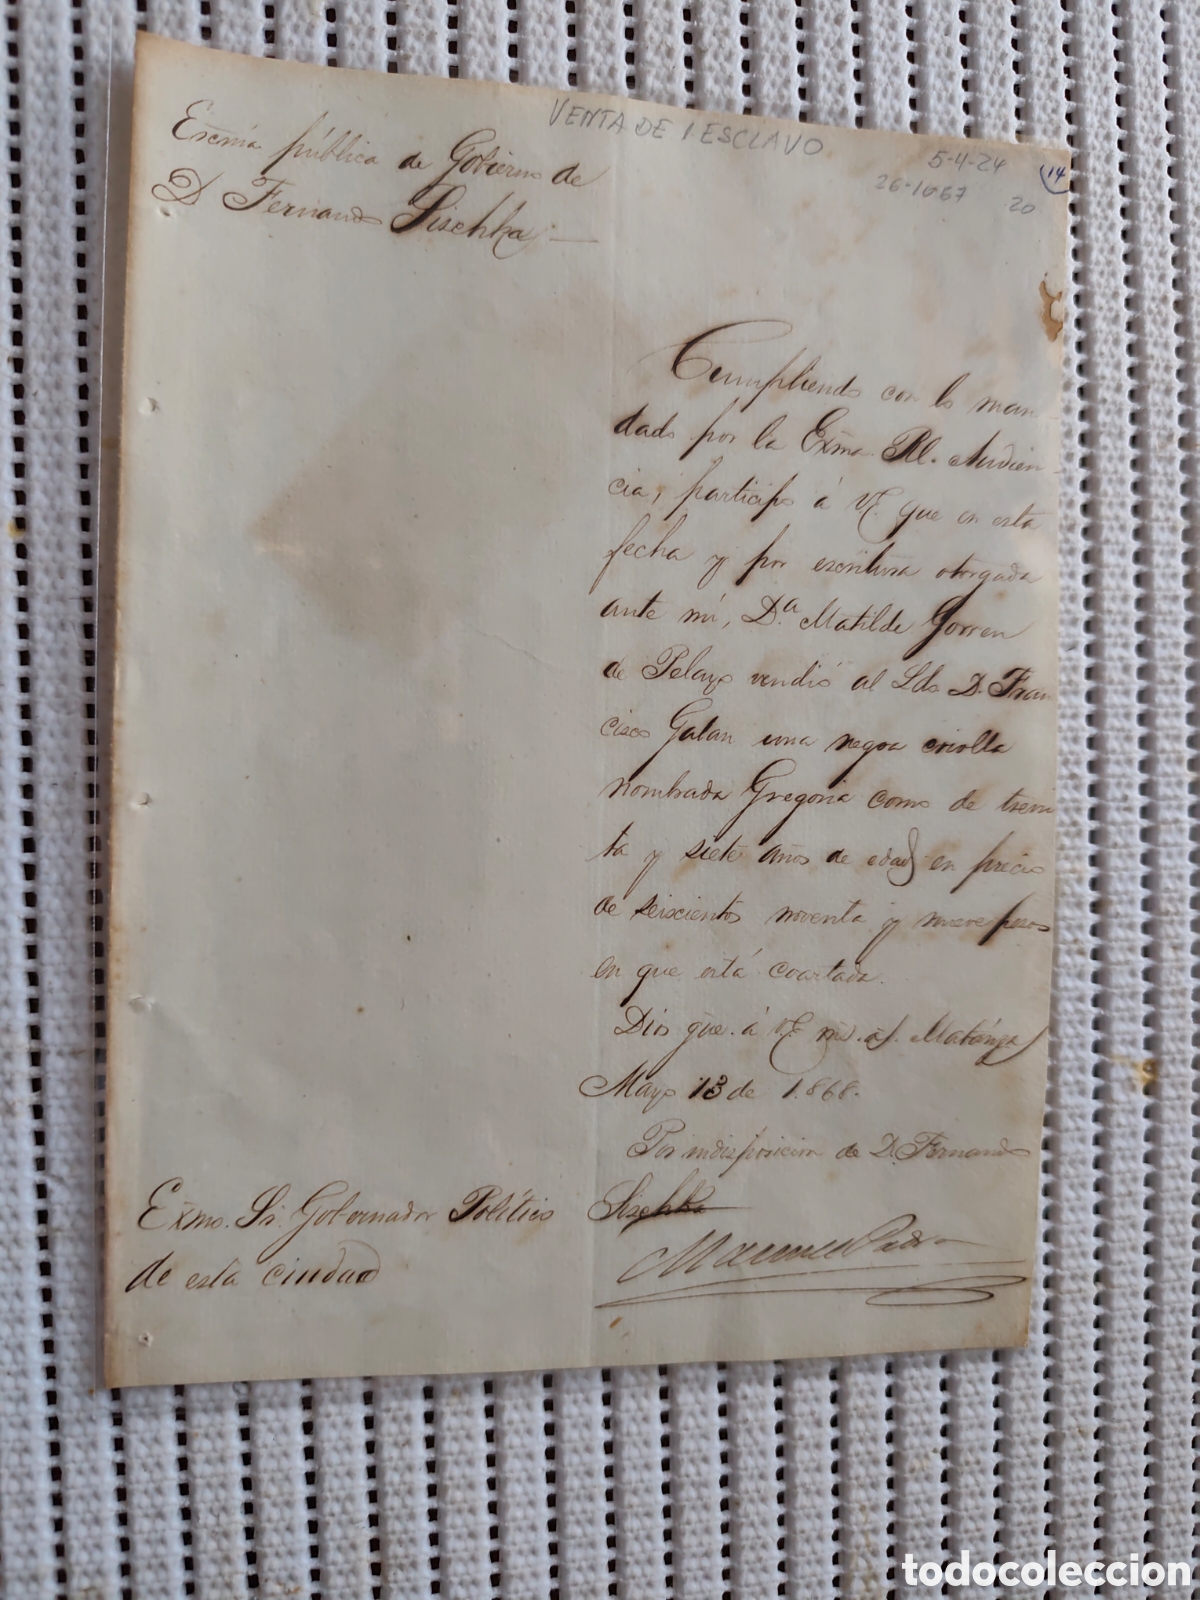 VENTA DE 1 ESCLAVO
5-4-24
14
26-10-67
20
Escnía pública de Gobierno de
D Fernando Sischka
Cumpliendo con lo man-
dado por la Exma. Rl. Audien-
cia, participo á VE. que en esta
fecha y por escritura otorgada
ante mí, D.ª Matilde Gorren
de Pelayo vendió al Ldo D. Fran
cisco Galan una negra criolla
nombrada Gregoria como de trein
ta y siete años de edad en precio
de seiscientos noventa y nueve pesos
en que está coartada.
Dios gue. á VE. ms. as. Matánzas
Mayo 13 de 1.868.
Por indisposicion de D. Fernando
Sischka
Exmo. Sr. Gobernador Político
de esta ciudad
todocoleccion